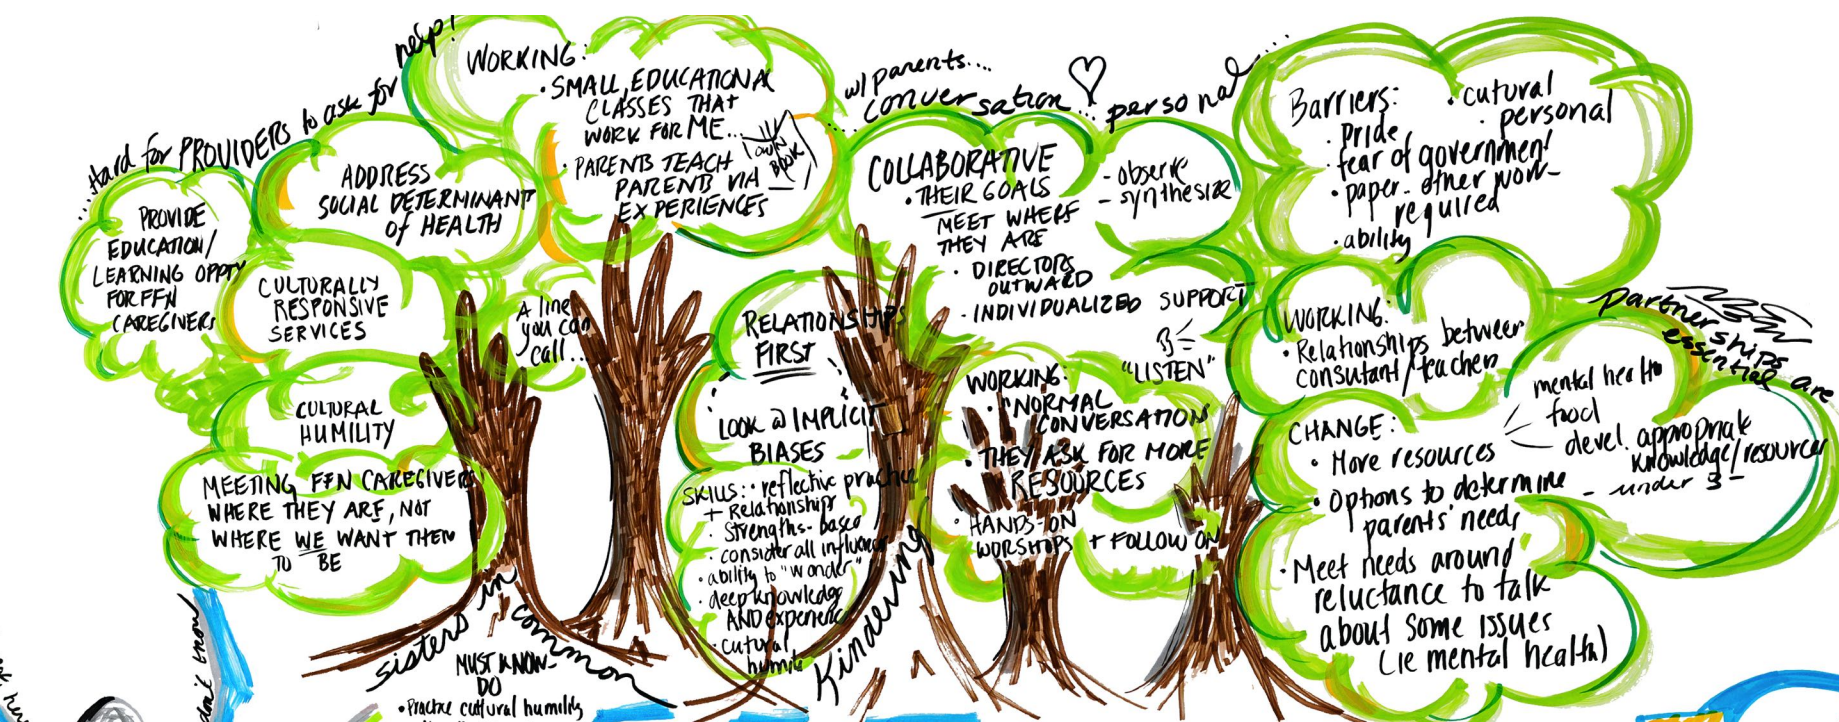 ...Hard for PROVIDERS to ask for help!
PROVIDE
EDUCATION/
LEARNING OPPTY
FOR FFN
CAREGIVERS
ADDRESS
SOCIAL DETERMINANT
of HEALTH
CULTURALLY
RESPONSIVE
SERVICES
CULTURAL
HUMILITY
MEETING FFN CAREGIVERS
WHERE THEY ARE, NOT
WHERE WE WANT THEM
TO BE
WORKING:
• SMALL, EDUCATIONAL
CLASSES THAT
WORK FOR ME...
• PARENTS TEACH
PARENTS VIA
EXPERIENCES
OWN
BOOK
A line
you can
call...
w/ parents...
... conversation... personal...
COLLABORATIVE
• THEIR GOALS
MEET WHERE
THEY ARE
• DIRECTORS
OUTWARD
- INDIVIDUALIZED SUPPORT
- observe
- synthesize
"LISTEN"
RELATIONSHIPS
FIRST
LOOK @ IMPLICIT
BIASES
SKILLS: • reflective practice
+ Relationships
• Strengths-based
• consider all influences
• ability to "wonder"
• deep knowledge
AND experience
• cutural
humility
WORKING:
• "NORMAL
CONVERSATION
• THEY ASK FOR MORE
RESOURCES
• HANDS-ON
WORSHOPS + FOLLOW ON
Barriers:
• Pride
• fear of government
• paper- other work-
required
• ability
• cutural
• personal
WORKING:
• Relationships between
consutant/teacher
partnerships are
essential
CHANGE:
• More resources
mental health
food
devel. appropriate
knowledge/resources
- under 3 -
• Options to determine
parents' needs
• Meet needs around
reluctance to talk
about some issues
(ie mental health)
sisters in common
Kindering
MUST KNOW-
DO
• Practice cultural humility
don't know